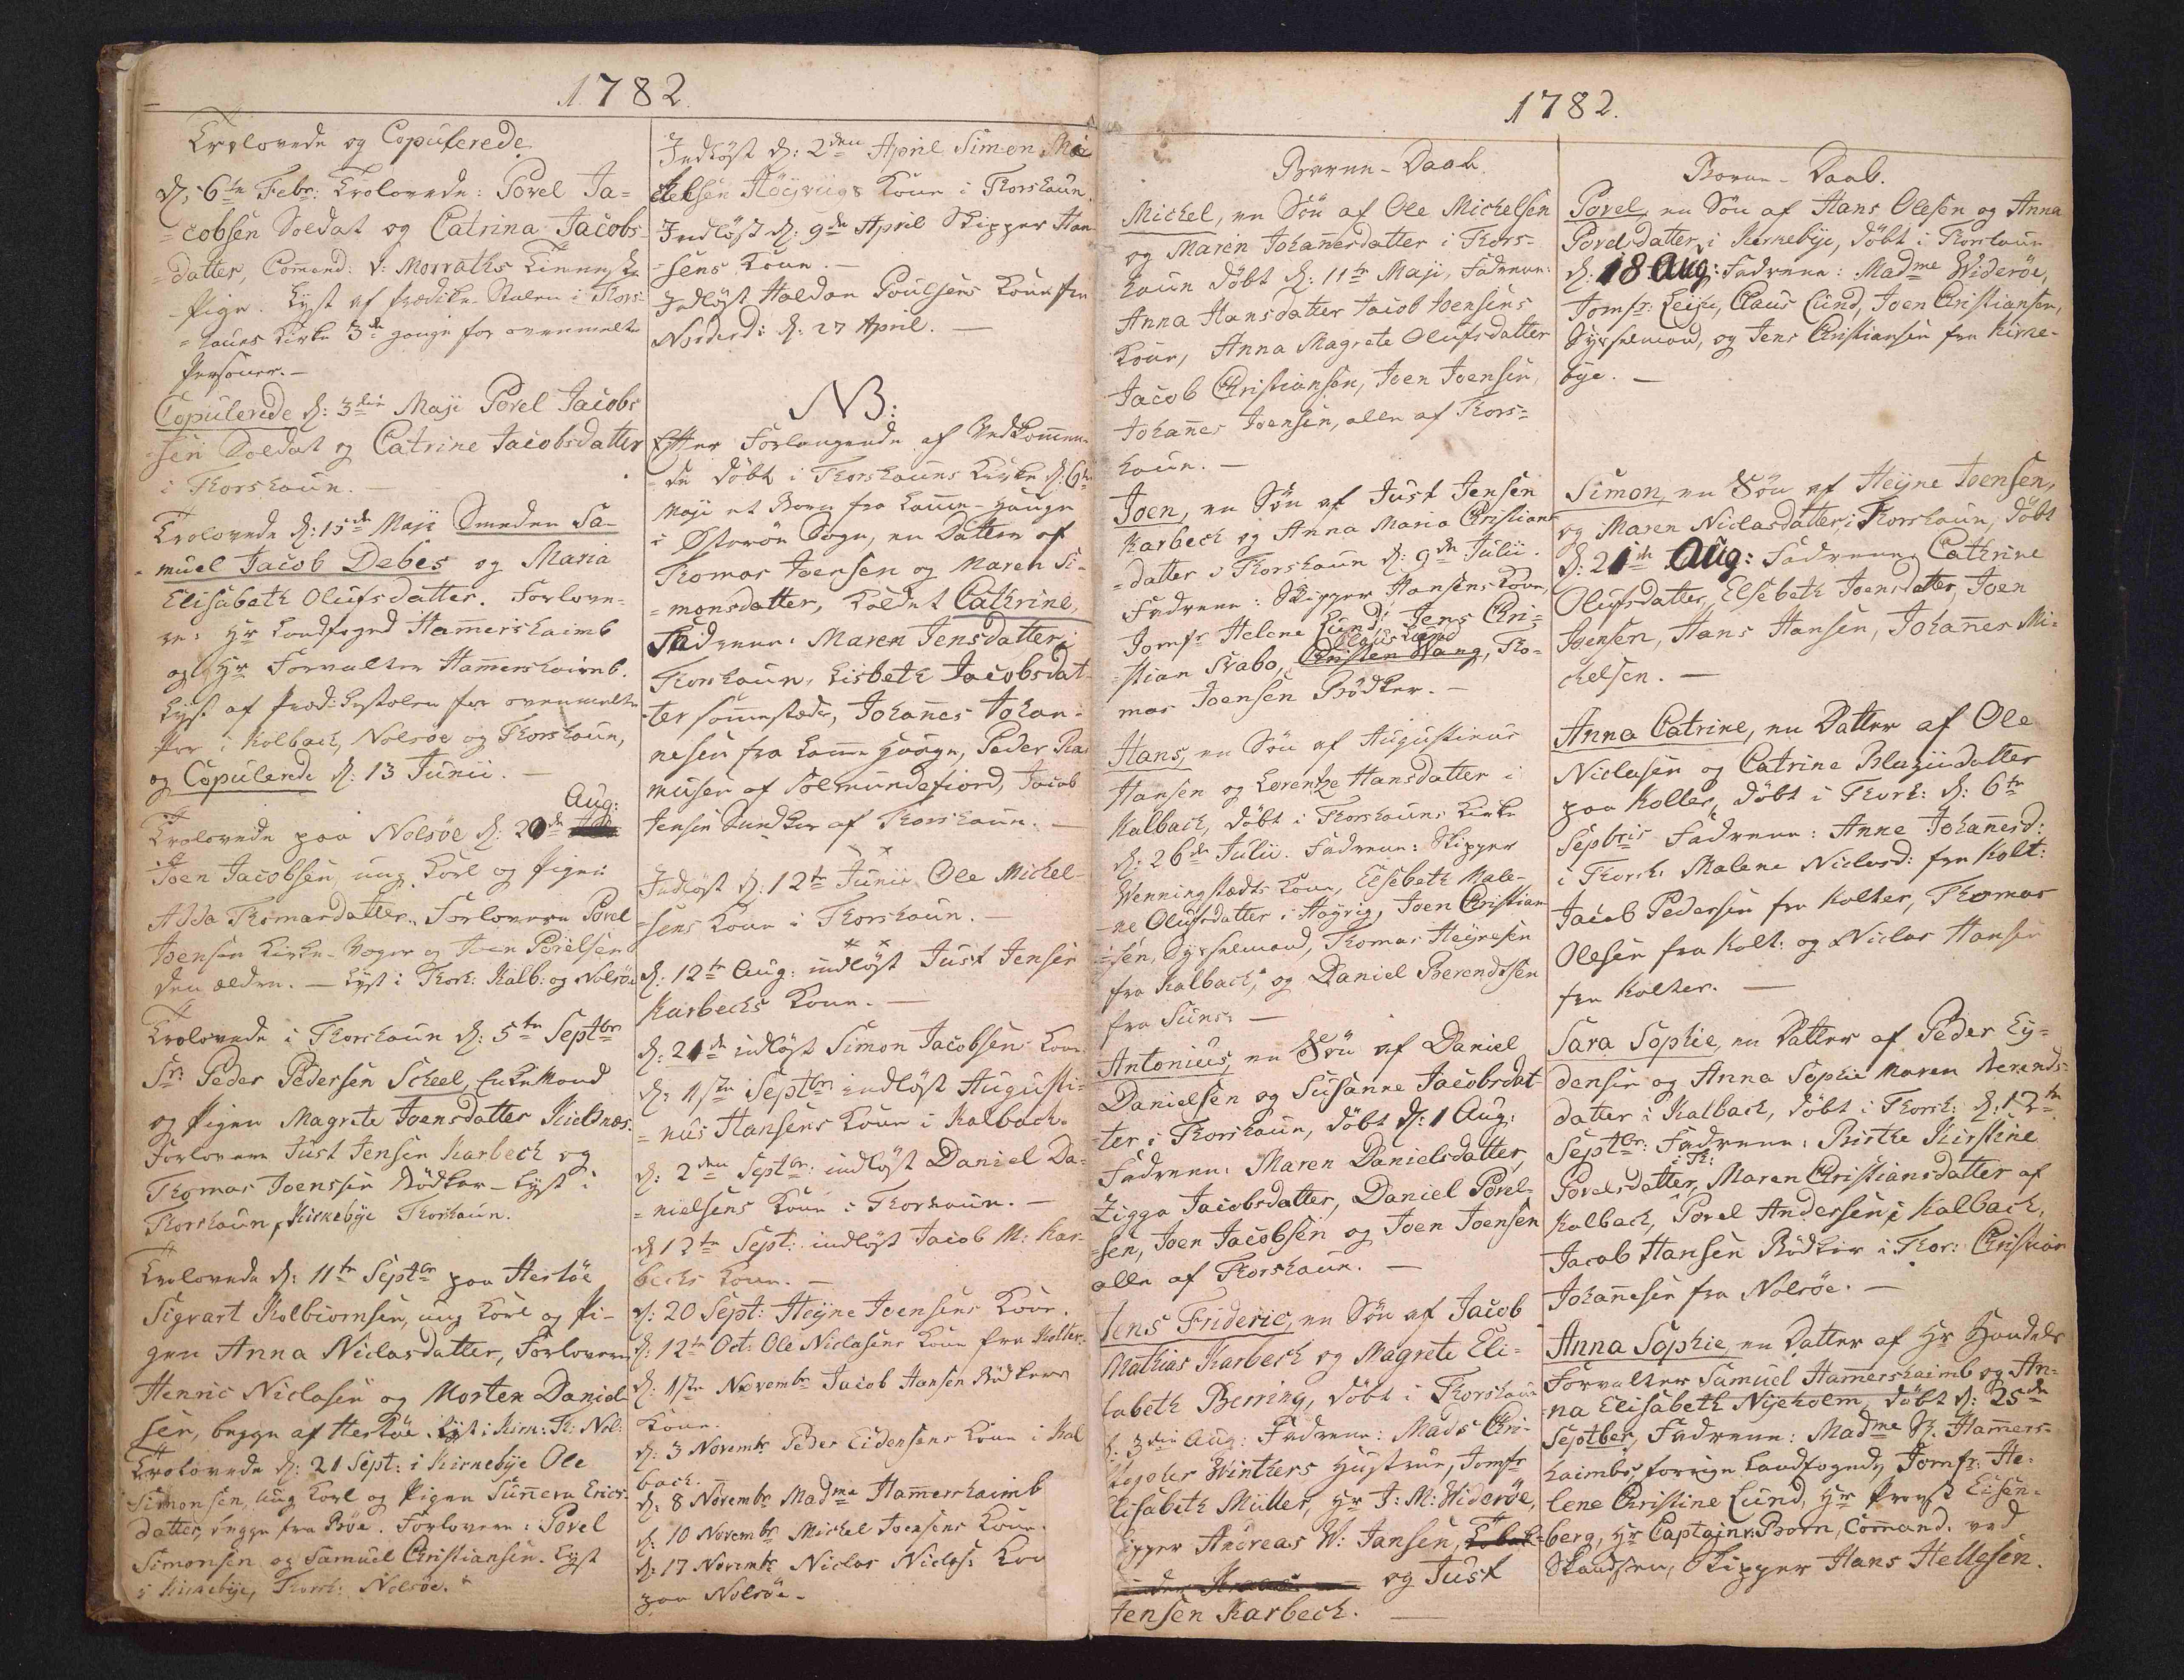 1782.
Trolovede og Copulerede.
d: 6te Febr: Trolovede: Povel Ja=
=cobsen Soldat og Catrina Jacobs-
=datter, Comend: v: Morraths Tieneste
Pige. Lyst af Prædike Stolen i Thors-
=hauns Kirke 3de gange for ovenmelte
Personer.-
Copulerede d: 3die Maji Povel Jacob-
sen Soldat og Catrine Jacobsdatter
i Thorshaun.
Trolovede d: 15de Maji Smeden Sa-
=muel Jacob Debes og Maria
Elisabeth Olufsdatter. Forlove-
re: Hr Landfoged Hammershaimb
og Hr Forvalter Hammershaimb.
Lyst af Præd: Kestolen for ovenmelte
Par i Kolbach, Nolsøe og Thorshaun,
og Copulerede d: 13 Junii.-
Aug:
Trolovede paa Nolsøe d: 20de
Joen Jacobsen, ung Karl og Pigen
Adda Thomasdatter. Forlovere Povel
Joensen Kirke-Værger og Joen Povelsen
den ældre. - Lyst i Thorh: Kalb: og Nolsøe
Trolovede i Thorshaun d: 5te Septbr
Sr: Peder Pedersen Scheel, Enke Mand
og Pigen Magrete Joensdatter Kieldnæs:
Forlovere Just Jensen Karbech og
Thomas Joenssen Bødker - Lyst i
Thorshaun, Kirkebÿe Thorshaun.
Trolovede d: 11te Septbr paa Hestøe
Sigvart Kolbiornsen, ung Karl og Pi-
gen Anna Niclasdatter, Forlovere
Henric Niclasen og Morten Daniel-
sen, begge af Hestøe. Lyst i Kirk: Th: Nol:
Trolovede d: 21 Sept: i Kirkebÿe Ole
Simonsen, ung Karl og Pigen Sunneva Erics-
datter, begge fra Bøe. Forlovere: Povel
Simonsen og Samuel Christiansen. Lyst
i Kirkebÿe, Thorsh: Nolsøe.
Indløst d: 2den April Simon Mi-
chelsen Höÿviigs Kone i Thorshaun
Indløst d: 9de April Skipper Han-
=sens Kone.-
Indløst Haldan Poulsens Kone fra
Norderd: d: 27 April.-
NB:
Efter Forlangende af Vedkommen-
=de døbt i Thorshauns Kirke d: 6te
Maji et Barn fra Lamme-Hauge
i Østerøe Sogn, en Datter af
Thomas Joensen og Maren Si-
=monsdatter, kaldet Cathrine,
Faddrene: Maren Jensdatter i
Thorshaun, Lisbeth Jacobsdat-
ter sammestæds, Johannes Johan-
nesen fra Lamme Hauge, Peder Ras-
musen af Solmundefiord, Jacob
Jensen Sundker af Thorshaun.-
Indløst d: 12te Junii Ole Michel-
=sens Kone i Thorshaun.-
d: 12te Aug: indløst Just Jensen
Karbechs Kone.-
d: 21de indløst Simon Jacobsens Kone
d: 1ste Septbr: indløst Augusti-
=nus Hansens Kone i Kalbach.
d: 2den Septbr: indløst Daniel Da-
=nielsens Kone i Thorshaun.-
d 12te Sept: indløst Jacob M: Kar-
bechs Kone.-
d: 20 Sept: Heÿne Joensens Kone.
d: 12te Oct: Ole Niclasens Kone fra Kolter.
d: 1ste Novembr Jacob Hansen Bødkers
Kone.
d: 3 Novembr Peder Eidensens Kone i Kal
bach.
d: 8 Novembr Madme Hammershaimb
d: 10 Novembr Michel Joensens Kone.
d: 17 Novembr Niclas Niclas: Kon
paa Nolsöe.
1782.
Børne-Daab.
Michel, en Søn af Ole Michelsen
og Maren Johannesdatter i Thors-
haun døbt d: 11te Maji, Fadrene:
Anna Hansdatter Jacob Joensens
Kone, Anna Magrete Olufsdatter
Jacob Christiansen, Joen Joensen,
Johannes Joensen, alle af Thors=
haun.-
Joen, en Søn af Just Jensen
Karbech og Anna Maria Christians-
=datter i Thorshaun d: 9de Julii.
Fadrene: Skipper Hansens Kone,
Jomfr Helene Lund, Jens Chri-
Claus Lund
stian Svabo, Christen Wang, Tho-
mas Joensen Bødker.-
Hans, en Søn af Augustinus
Hansen og Lorentze Hansdatter i
Kalbach, døbt i Thorshauns Kirke
d: 26de Julii. Fadrene: Skipper
Wenningstædts Kone, Elsebeth Male-
ne Olufsdatter i Höÿvig, Joen Christian-
=sen, Sysselmand, Thomas Heÿnesen
fra Kalbach, og Daniel Berendtsen
fra Suns:-
Antonius, en Søn af Daniel
Danielsen og Susanne Jacobsdat-
ter i Thorshaun, døbt d: 1 Aug:
Fadrene: Maren Danielsdatter
Zigga Jacobsdatter, Daniel Povel-
sen, Joen Jacobsen og Joen Joensen
alle af Thorshaun.-
Jens Frideric, en Søn af Jacob
Mathias Karbech og Magrete Eli-
sabeth Berring, døbt i Thorshaun
d: 3die Aug: Fadrene: Mads Chri-
stopher Winthers Hustrue, Jomfr
Elisabeth Müller, Hr J: M: Widerøe,
Skipper Andreas W: Jansen,
og Just
Jensen Karbech.
1782.
Børne-Daab.
Povel, en Søn af Hans Olesen og Anna
Povelsdatter i Kirkebÿe, døbt i Thorshaun
d: 18 Aug: Fadrene: Madme Widerøe,
Jomfr: Leige, Claus Lund, Joen Christiansen,
Sysselmand, og Jens Christiansen fra Kirke-
bÿe.-
Simon, en Søn af Heÿne Joensen,
og Maren Niclasdatter i Thorshaun, døbt
d: 21de Aug: Fadrene Cathrine
Olufsdatter, Elsebeth Joensdatter, Joen
Joensen, Hans Hansen, Johannes Mi-
chelsen.-
Anna Catrine, en Datter af Ole
Niclasen og Catrine Blaziidatter
paa Kolter, døbt i Thorh: d: 6te
Septbris Fadrene: Anne Johannesd:
i Thorsh: Malene Niclasd: fra Kolt:
Jacob Pedersen fra Kolter, Thomas
Olesen fra Kolt: og Niclas Hansen
fra Kolter.-
Sara Sophie, en Datter af Peder Ey-
densen og Anna Sophie Maren Berends-
datter i Kalbach, døbt i Thorsh: d: 12te
Septbr: Fadrene: Birthe Kirstine
i Th:
Povelsdatter, Maren Christiansdatter af
Kalbach, Povel Andersen i Kalbach,
Jacob Hansen Bødker i Thor: Christian
Johannesen fra Nolsöe.-
Anna Sophie, en Datter af Hr Handels
Forvalter Samuel Hammershaimb og An-
na Elisabeth Nÿeholm, døbt d: 25de
Septber, Fadrene: Madme Sr. Hammers-
haimbs, forrige Landfogeds, Jomfr: He-
lene Christine Lund, Hr Provst Eisen-
berg, Hr Captain v: Born, Command. ved
Skandsen, Skipper Hans Hellesen.